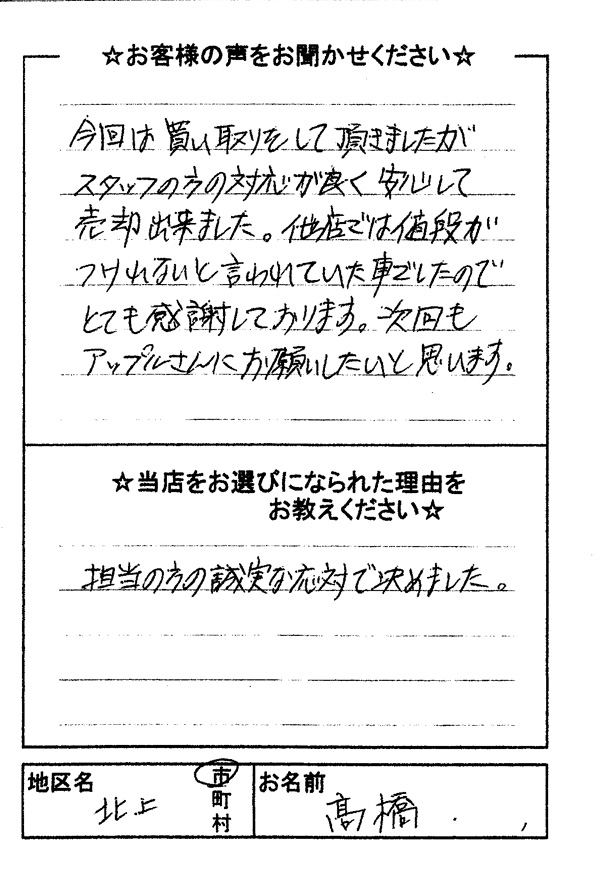 ☆お客様の声をお聞かせください☆
今回は買い取りをして頂きましたが
スタッフの方の対応が良く安心して
売却出来ました。他店では値段が
つけれないと言われていた車でしたので
とても感謝しております。次回も
アップルさんにお願いしたいと思います。
☆当店をお選びになられた理由を
お教えください☆
担当の方の誠実な応対で決めました。
地区名
北上
市
町
村
お名前
髙橋